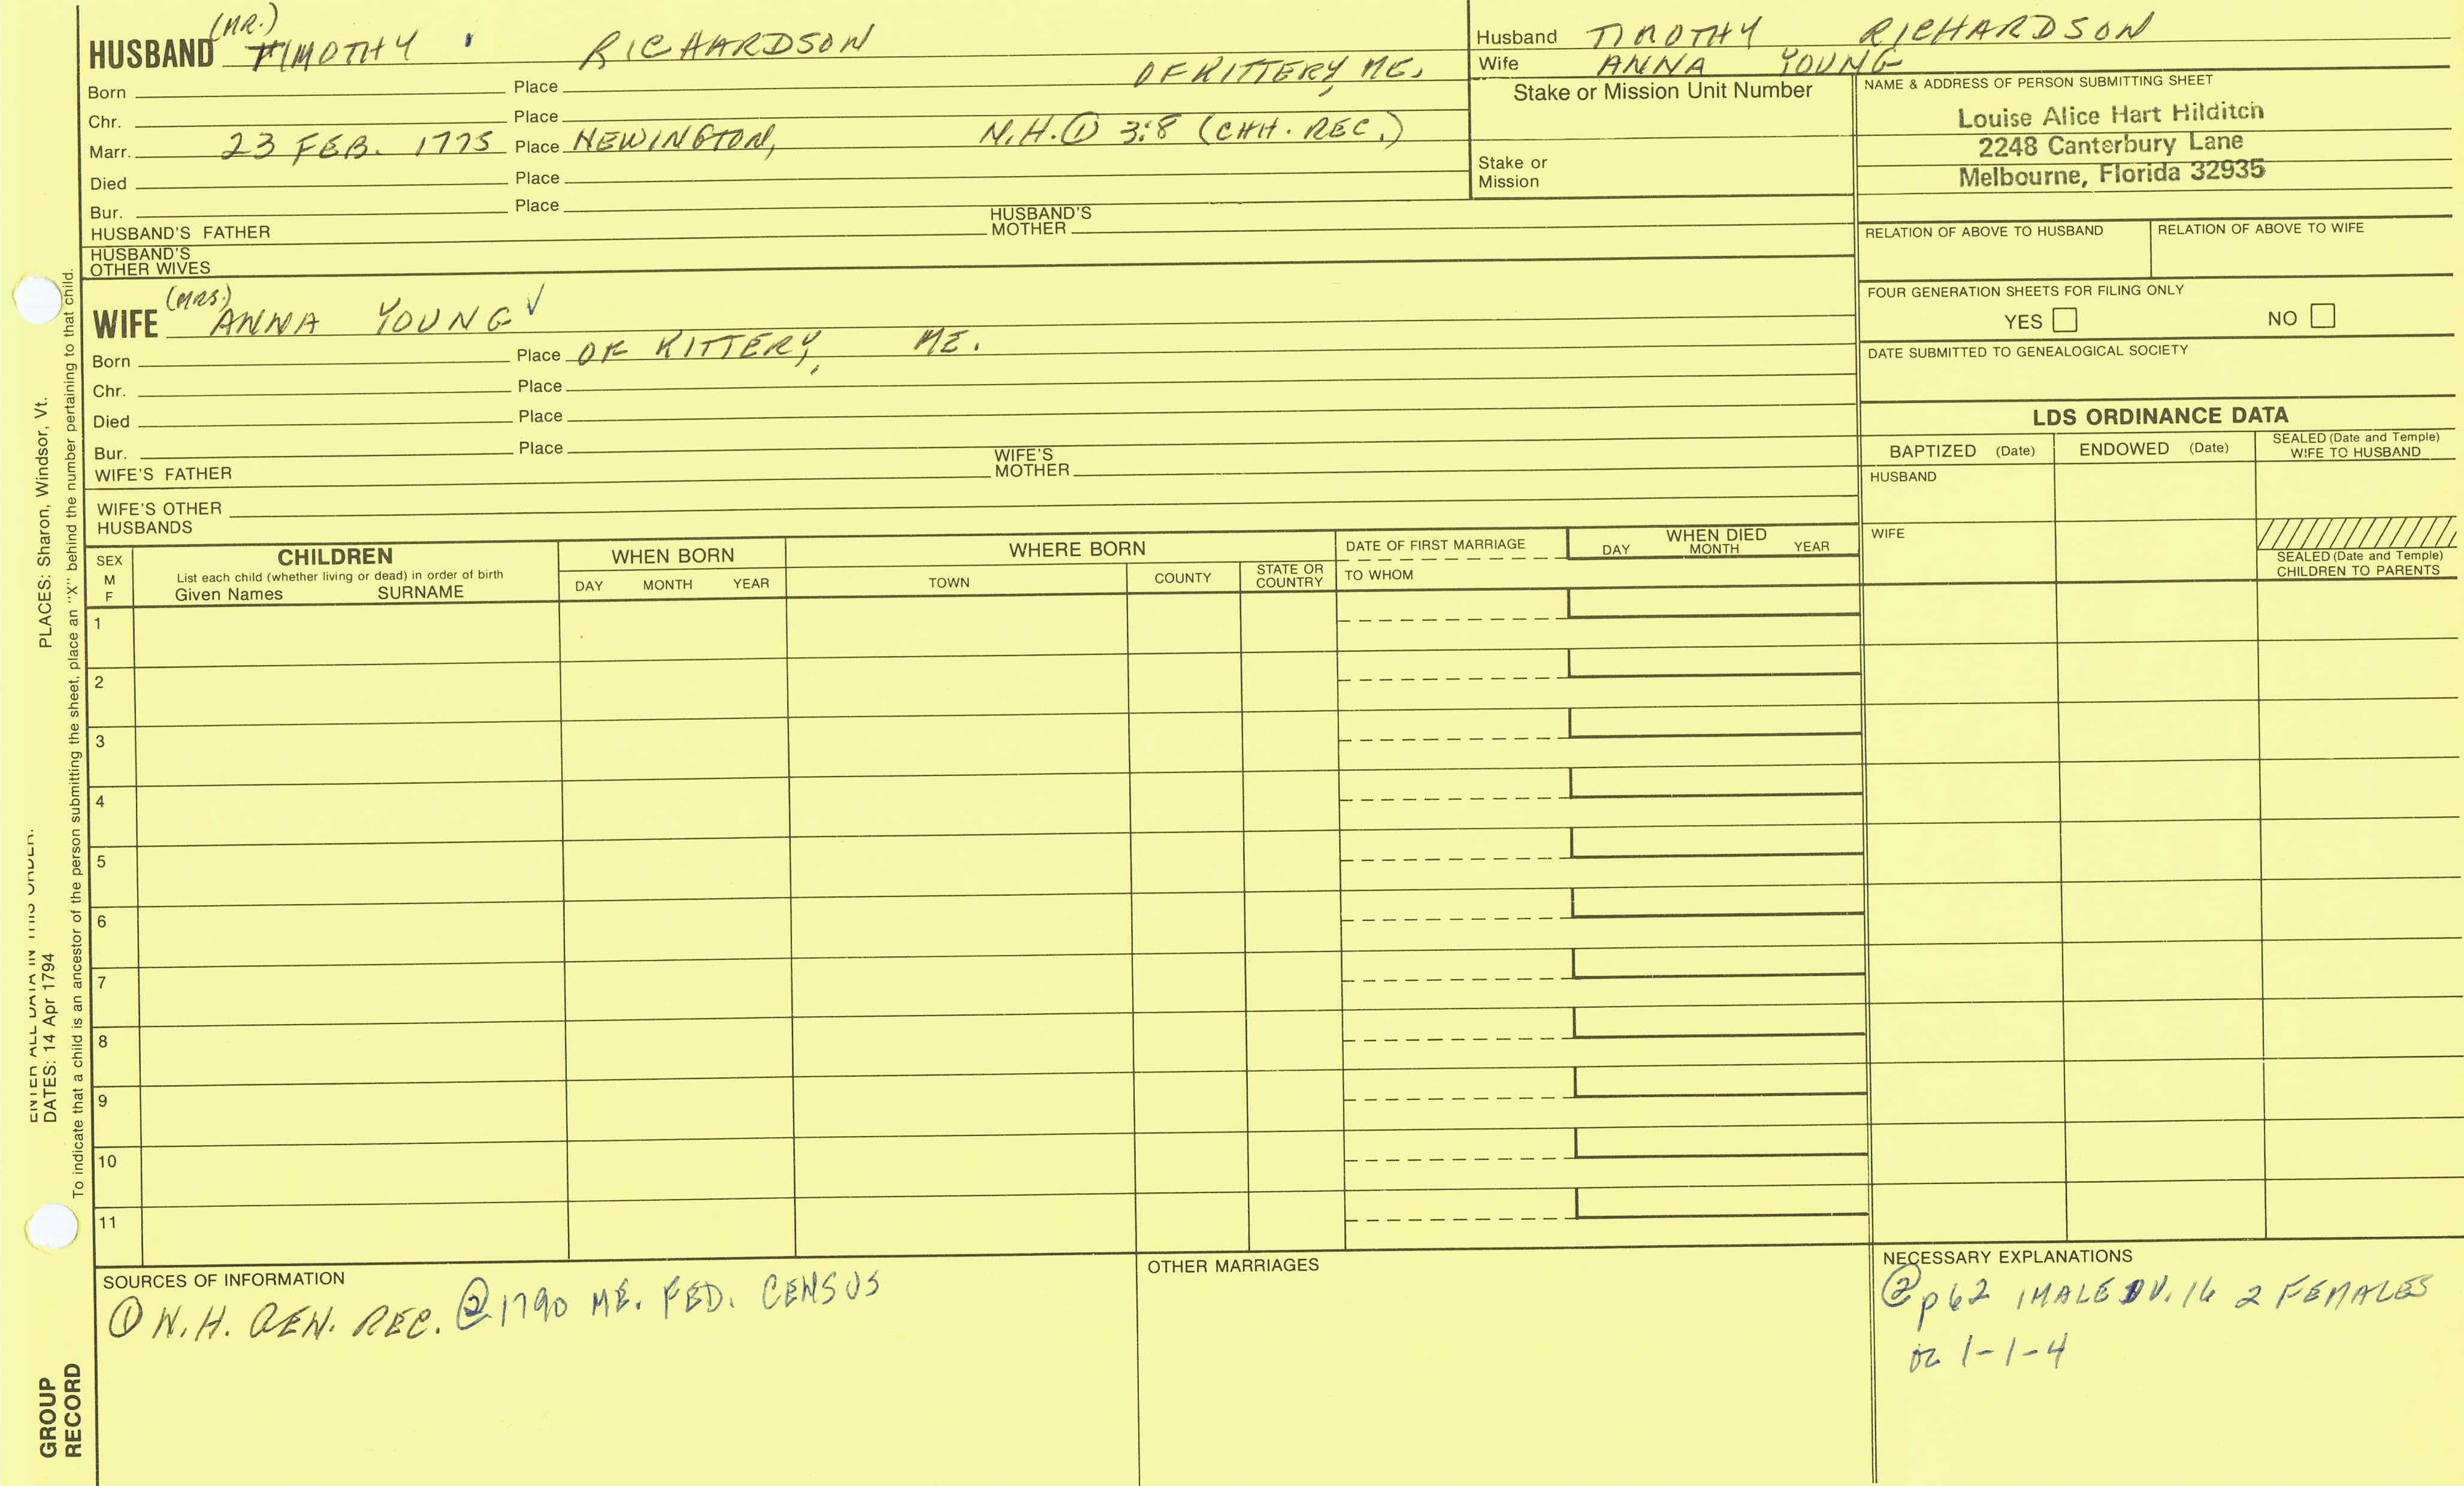 (MR.)
HUSBAND TIMOTHY RICHARDSON
OF KITTERY, ME.
Born Place
Chr. Place
Marr. 23 FEB. 1775 Place NEWINGTON, N.H. ① 3:8 (CHH. REC.)
Died Place
Bur. Place
HUSBAND'S FATHER HUSBAND'S MOTHER
HUSBAND'S
OTHER WIVES
(MRS.)
WIFE ANNA YOUNG √
Born Place OF KITTERY, ME.
Chr. Place
Died Place
Bur. Place
WIFE'S FATHER WIFE'S MOTHER
WIFE'S OTHER
HUSBANDS
Husband TIMOTHY RICHARDSON
Wife ANNA YOUNG
Stake or Mission Unit Number
Stake or
Mission
NAME & ADDRESS OF PERSON SUBMITTING SHEET
Louise Alice Hart Hilditch
2248 Canterbury Lane
Melbourne, Florida 32935
RELATION OF ABOVE TO HUSBAND RELATION OF ABOVE TO WIFE
FOUR GENERATION SHEETS FOR FILING ONLY
YES NO
DATE SUBMITTED TO GENEALOGICAL SOCIETY
LDS ORDINANCE DATA
BAPTIZED (Date) ENDOWED (Date) SEALED (Date and Temple) WIFE TO HUSBAND
HUSBAND
WIFE
SEALED (Date and Temple)
CHILDREN TO PARENTS
SEX
M
F
CHILDREN
List each child (whether living or dead) in order of birth
Given Names SURNAME
WHEN BORN
DAY MONTH YEAR
WHERE BORN
TOWN COUNTY STATE OR COUNTRY
DATE OF FIRST MARRIAGE
TO WHOM
WHEN DIED
DAY MONTH YEAR
1
2
3
4
5
6
7
8
9
10
11
SOURCES OF INFORMATION
① N.H. GEN. REC. ② 1790 ME. FED. CENSUS
OTHER MARRIAGES
NECESSARY EXPLANATIONS
② p62 1 MALE OV. 16 2 FEMALES
or 1-1-4
ENTER ALL DATA IN THIS ORDER:
DATES: 14 Apr 1794 PLACES: Sharon, Windsor, Vt.
To indicate that a child is an ancestor of the person submitting the sheet, place an "X" behind the number pertaining to that child.
GROUP
RECORD